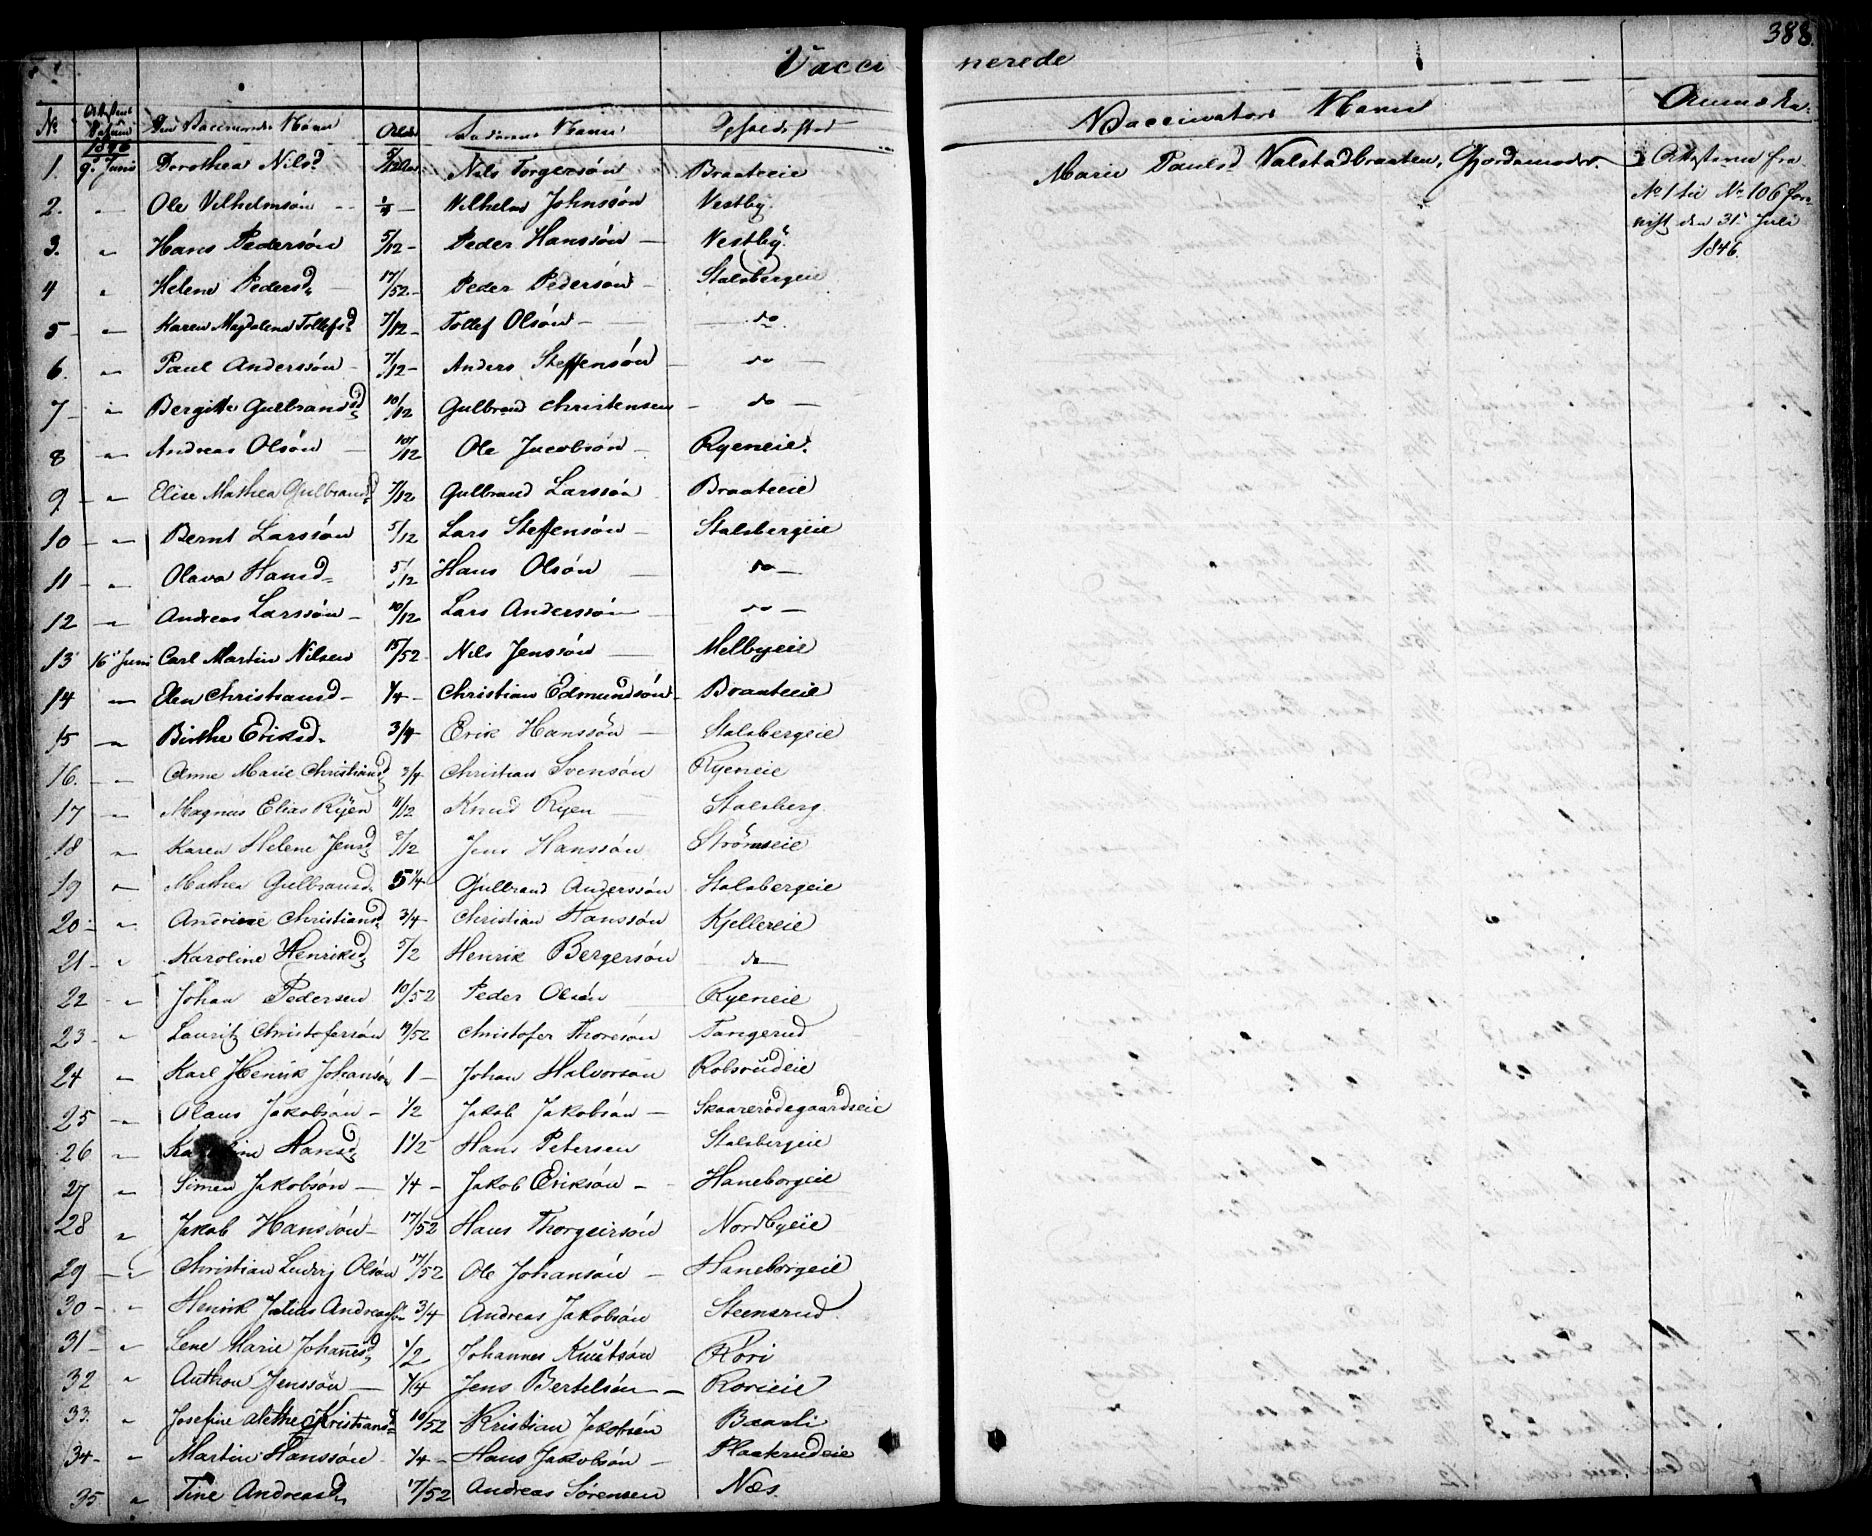 388.
Vaccinerede
No Attestens Datum Den Vaccineredes Navn Alder Faderens Navn Opholdssted Vaccinators Navn Anmærkn.
1846
1. 9de Juni Dorothea Nilsd 5/12 Nils Torgersön Braateeie Marie Paulsd Valstadbraaten, Gjordemoder. Attesterne fra
2. " Ole Vilhelmsön 1/4 Vilhelm Johnssön Vestby. No 1 til No 106
3. " Hans Pedersön 5/12 Peder Hanssön Vestby. den 31 Juli
4 " Helene Pedersd 17/52 Peder Pedersön Stalsbergeie 1846.
5 " Karen Magdalena Tollefsd 7/12 Tollef Olsön do
6. " Paul Anderssön 7/12 Anders Steffensön do
7 " Bergitte Gulbrandsd 10/12 Gulbrand Christensen do
8 " Andreas Olsön 10/12 Ole Jacobsön Ryeneie.
9. " Elise Mathea Gulbrandsd 7/12 Gulbrand Larssön Braateeie
10 " Bernt Larssön 5/12 Lars Steffensön Stalsbergeie
11 " Olava Hansd 5/12 Hans Olsön do
12 " Andreas Larssön 10/12 Lars Anderssön do
13 16de Juni Carl Martin Nilsen 15/52 Nils Jenssön Melbyeie
14 " Elen Christiansd 1/4 Christian Edmundsön Braateeie
15 " Birthe Eriksd 3/4 Erik Hanssön Stalsbergeie
16. " Anne Marie Christiansd 3/4 Christian Svensön Ryeneie
17 " Magnus Elias Ryen 11/12 Knud Ryen Stalsberg.
18 " Karen Helene Jensd /12 Jens Hanssön Strömseie
19 " Mathea Gulbransd 5 1/4 Gulbrand Anderssön Stalsbergeie
20 " Andrine Christiansd 3/4 Christian Hanssön Kjellereie
21 " Karoline Henriksd 5/2 Henrik Bergersön do
22 " Johan Pedersen 10/52 Peder Olsön Ryeneie
23 " Lauritz Christofersön /52 Christofer Thoresön Tangerud
24 " Karl Henrik Johansön 1 Johan Halvorsön Robsrudeie
25 " Olaus Jakobsön 1/2 Jakob Jakobsön Skaarerödegaardseie
26 " Hansd 1 1/2 Hans Petersen Stalsbergeie
27 " Simen Jakobsön 1/4 Jakob Eriksön Haneborgeie
28 " Jakob Hanssön 17/52 Hans Thorgeirsön Nordbyeie
29 " Christian Ludvig Olsön 17/52 Ole Johansön Haneborgeie
30 " Henrik Julius Andreassön 3/4 Andreas Jakobsön Steensrud
31 " Lene Marie Johannesd 1/2 Johannes Knutsön Rori
32 " Anthon Jenssön 1/4 Jens Bertelsön Rorieie
33. " Josefine Alethe Kristiansd 10/52 Kristian Jakobsön Baarli
34 " Martin Hanssön 1/4 Hans Jakobsön Plaakrudeie
35 " Tine Andreasd 17/52 Andreas Sörensen Næs.